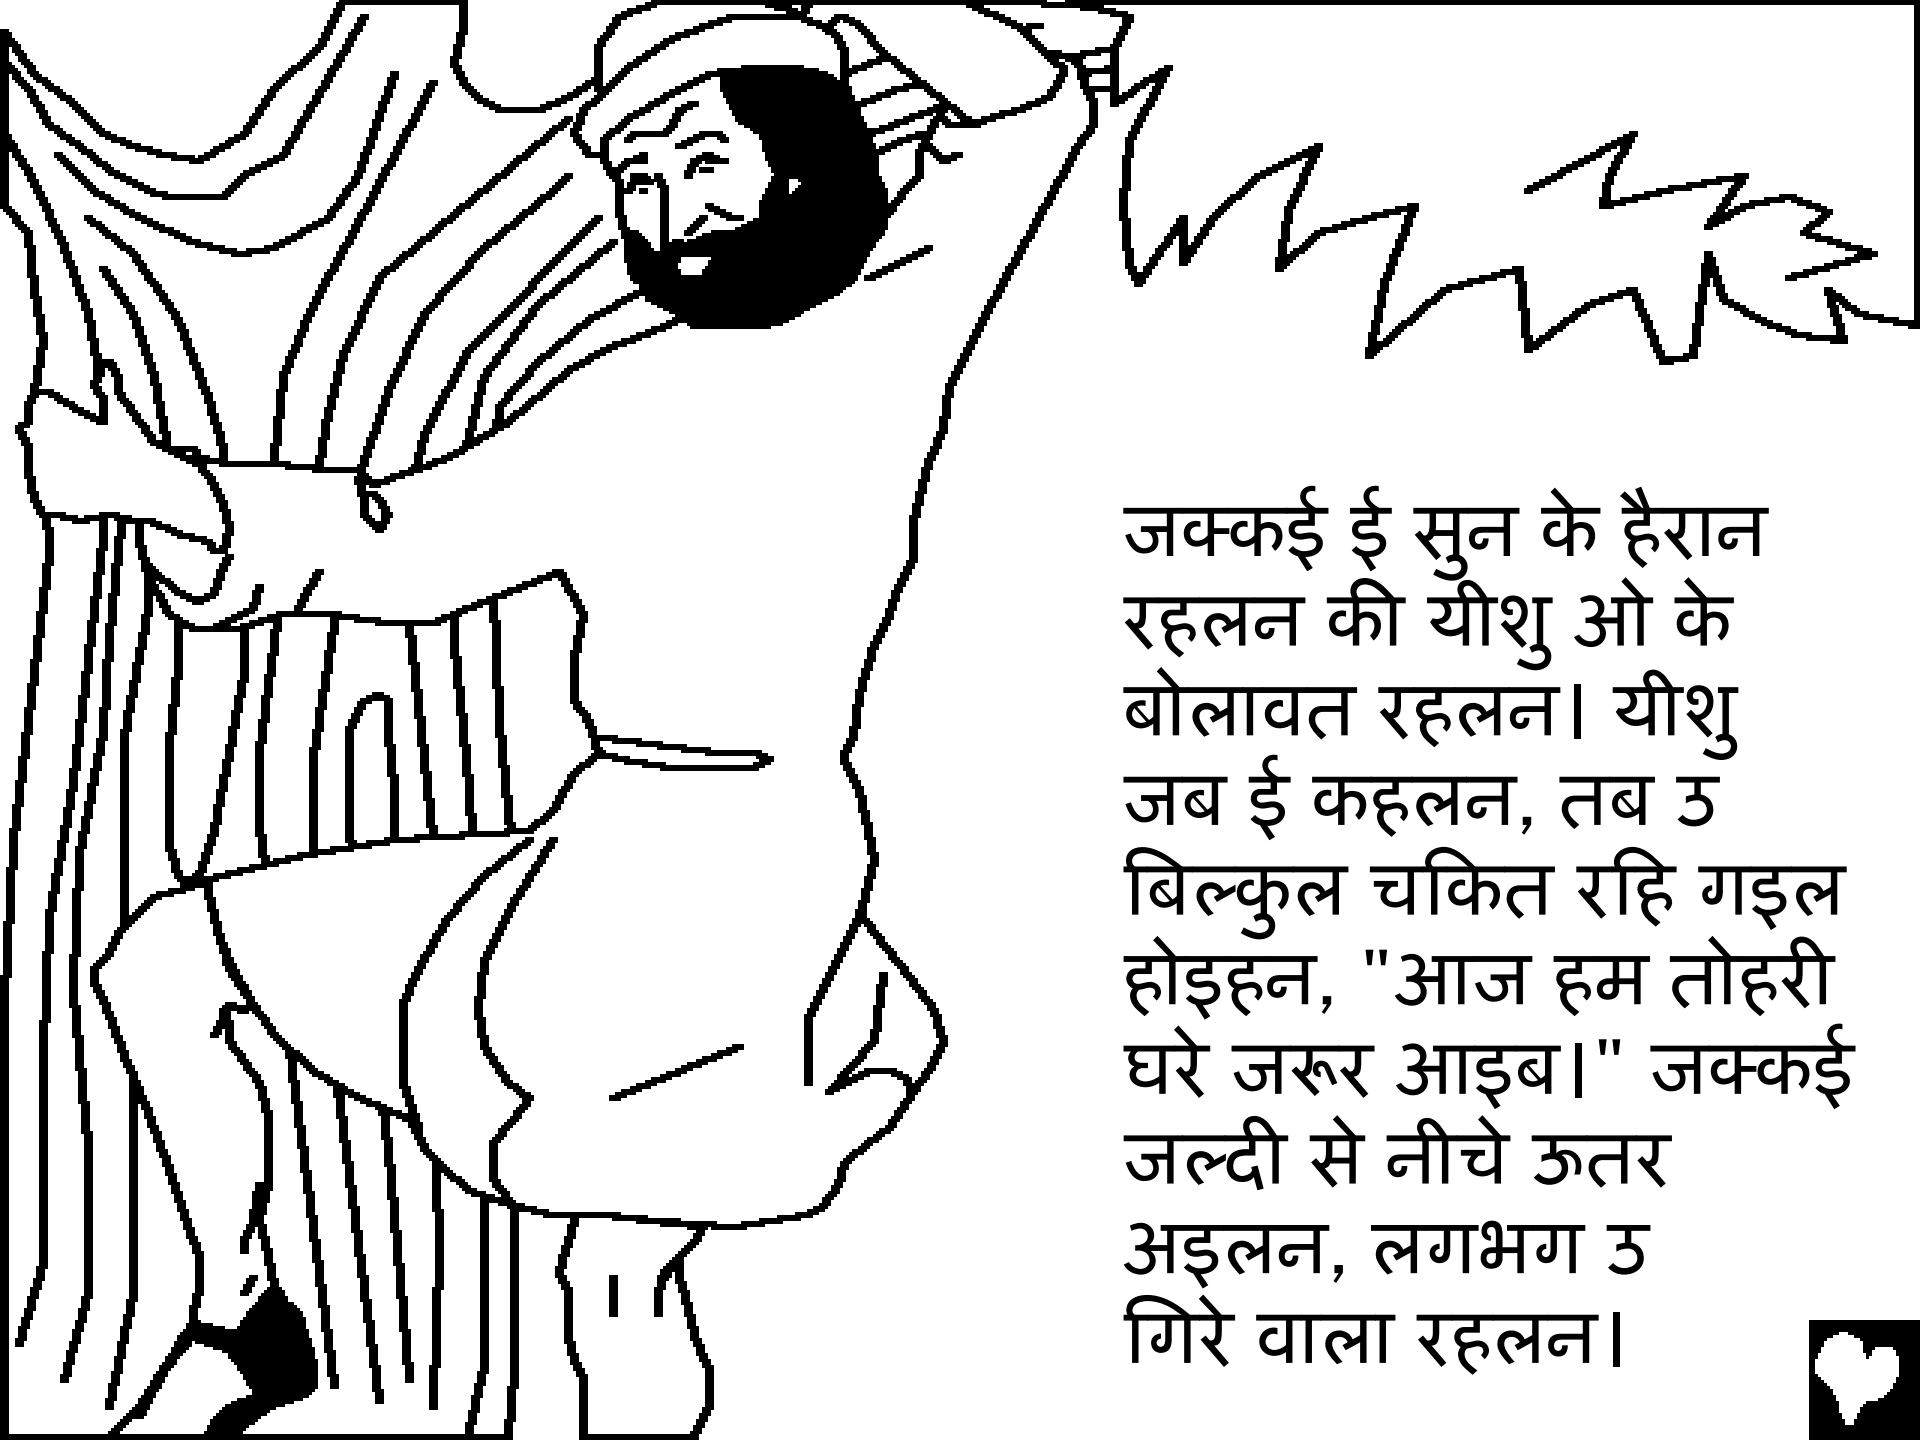 जक्कई ई सुन के हैरान
रहलन की यीशु ओ के
बोलावत रहलन। यीशु
जब ई कहलन, तब उ
बिल्कुल चकित रहि गइल
होइहन, "आज हम तोहरी
घरे जरूर आइब।" जक्कई
जल्दी से नीचे ऊतर
अइलन, लगभग उ
गिरे वाला रहलन।